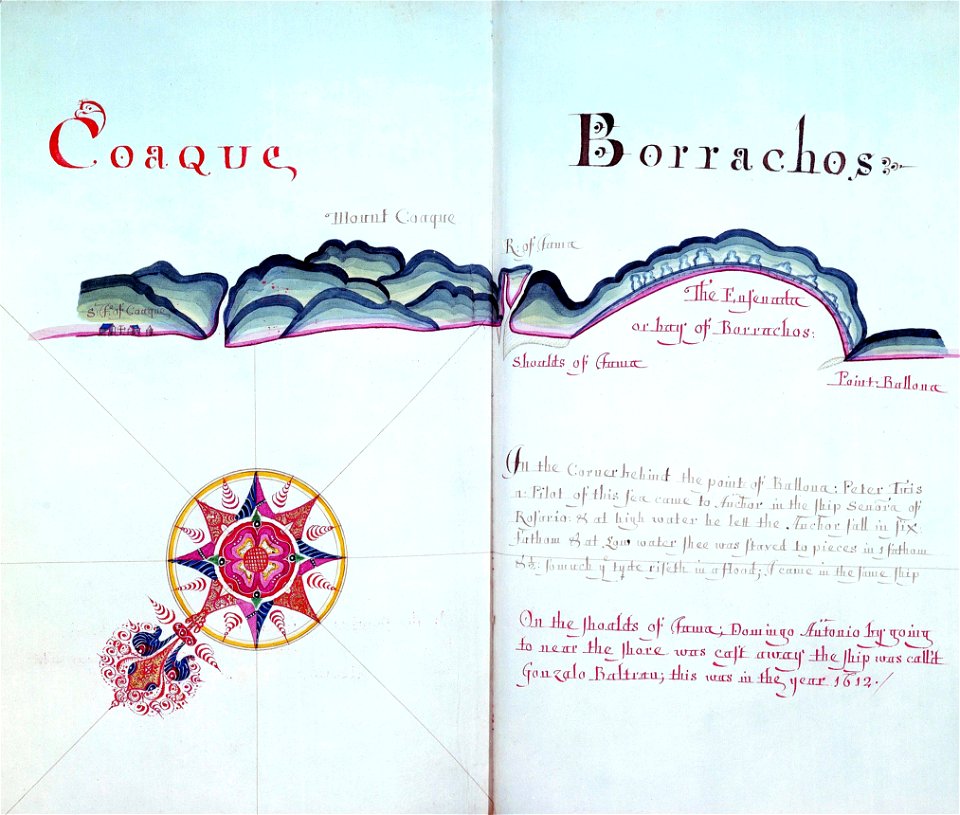 Coaque
Borrachos
Mount Coaque
R: of Jama
St. Fs. of Coaque
The Ensenada
or bay of Borrachos:
Shoalds of Jama
Point: Ballona
In the Corner behind the point of Ballona: Peter
a: Pilot of this sea came to Anchor in the ship Senōra of
Rosario: & at high water he lett the Anchor fall in six:
Fathom & at Low water shee was staved to pieces in 1 fathom
& ½: somuch ye tyde riseth in a flood; I came in the same ship
On the shoalds of Jama; Domingo Antonio by going
to near the shore was cast away the ship was call'd
Gonzalo Baltran; this was in the year 1612./